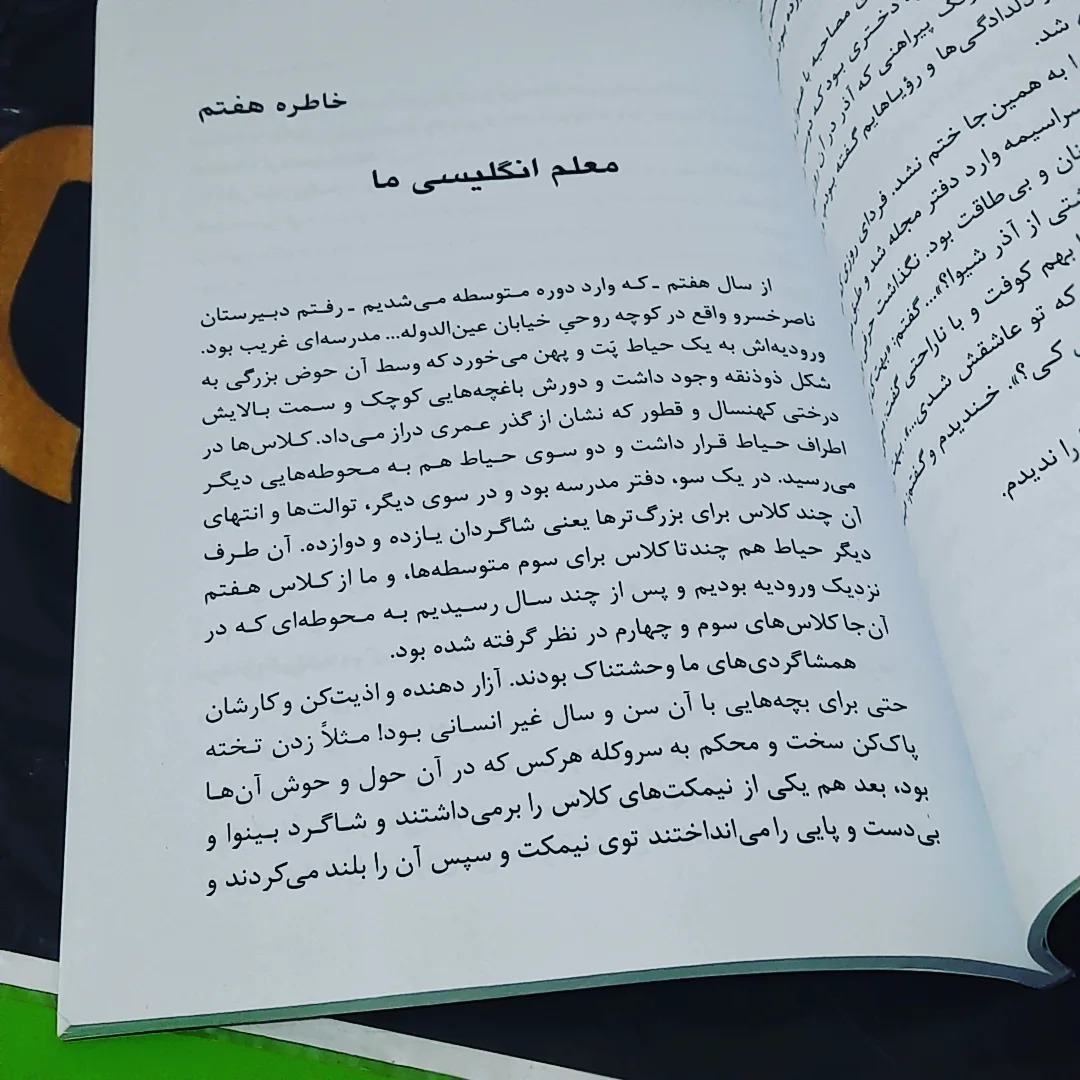 مصاحبه با
دختری بود که
پیراهنی که آذر در آن روز
دلدادگی‌ها و رؤیاهایم گفته بودم
شد.
به همین‌جا ختم نشد. فردای روزی که
سراسیمه وارد دفتر مجله شد و
و بی‌طاقت بود. نگذاشت حرفی
از آذر شیوا؟»... گفتم: «بهت
بهم کوفت و با ناراحتی گفت
که تو عاشقش شدی...».
کی؟». خندیدم و گفتم:
را ندیدم.
خاطره هفتم
معلم انگلیسی ما
از سال هفتم ـ که وارد دوره متوسطه می‌شدیم ـ رفتم دبیرستان
ناصرخسرو واقع در کوچه روحیِ خیابان عین‌الدوله... مدرسه‌ای غریب بود.
ورودیه‌اش به یک حیاط پَت و پهن می‌خورد که وسط آن حوض بزرگی به
شکل ذوذنقه وجود داشت و دورش باغچه‌هایی کوچک و سمت بالایش
درختی کهنسال و قطور که نشان از گذر عمری دراز می‌داد. کلاس‌ها در
اطراف حیاط قرار داشت و دو سوی حیاط هم به محوطه‌هایی دیگر
می‌رسید. در یک سو، دفتر مدرسه بود و در سوی دیگر، توالت‌ها و انتهای
آن چند کلاس برای بزرگ‌ترها یعنی شاگردان یازده و دوازده. آن طرف
دیگر حیاط هم چندتا کلاس برای سوم متوسطه‌ها، و ما از کلاس هفتم
نزدیک ورودیه بودیم و پس از چند سال رسیدیم به محوطه‌ای که در
آن‌جا کلاس‌های سوم و چهارم در نظر گرفته شده بود.
همشاگردی‌های ما وحشتناک بودند. آزار دهنده و اذیت‌کن و کارشان
حتی برای بچه‌هایی با آن سن و سال غیر انسانی بود! مثلاً زدن تخته
پاک‌کن سخت و محکم به سروکله هرکس که در آن حول و حوش آن‌ها
بود، بعد هم یکی از نیمکت‌های کلاس را برمی‌داشتند و شاگرد بینوا و
بی‌دست و پایی را می‌انداختند توی نیمکت و سپس آن را بلند می‌کردند و